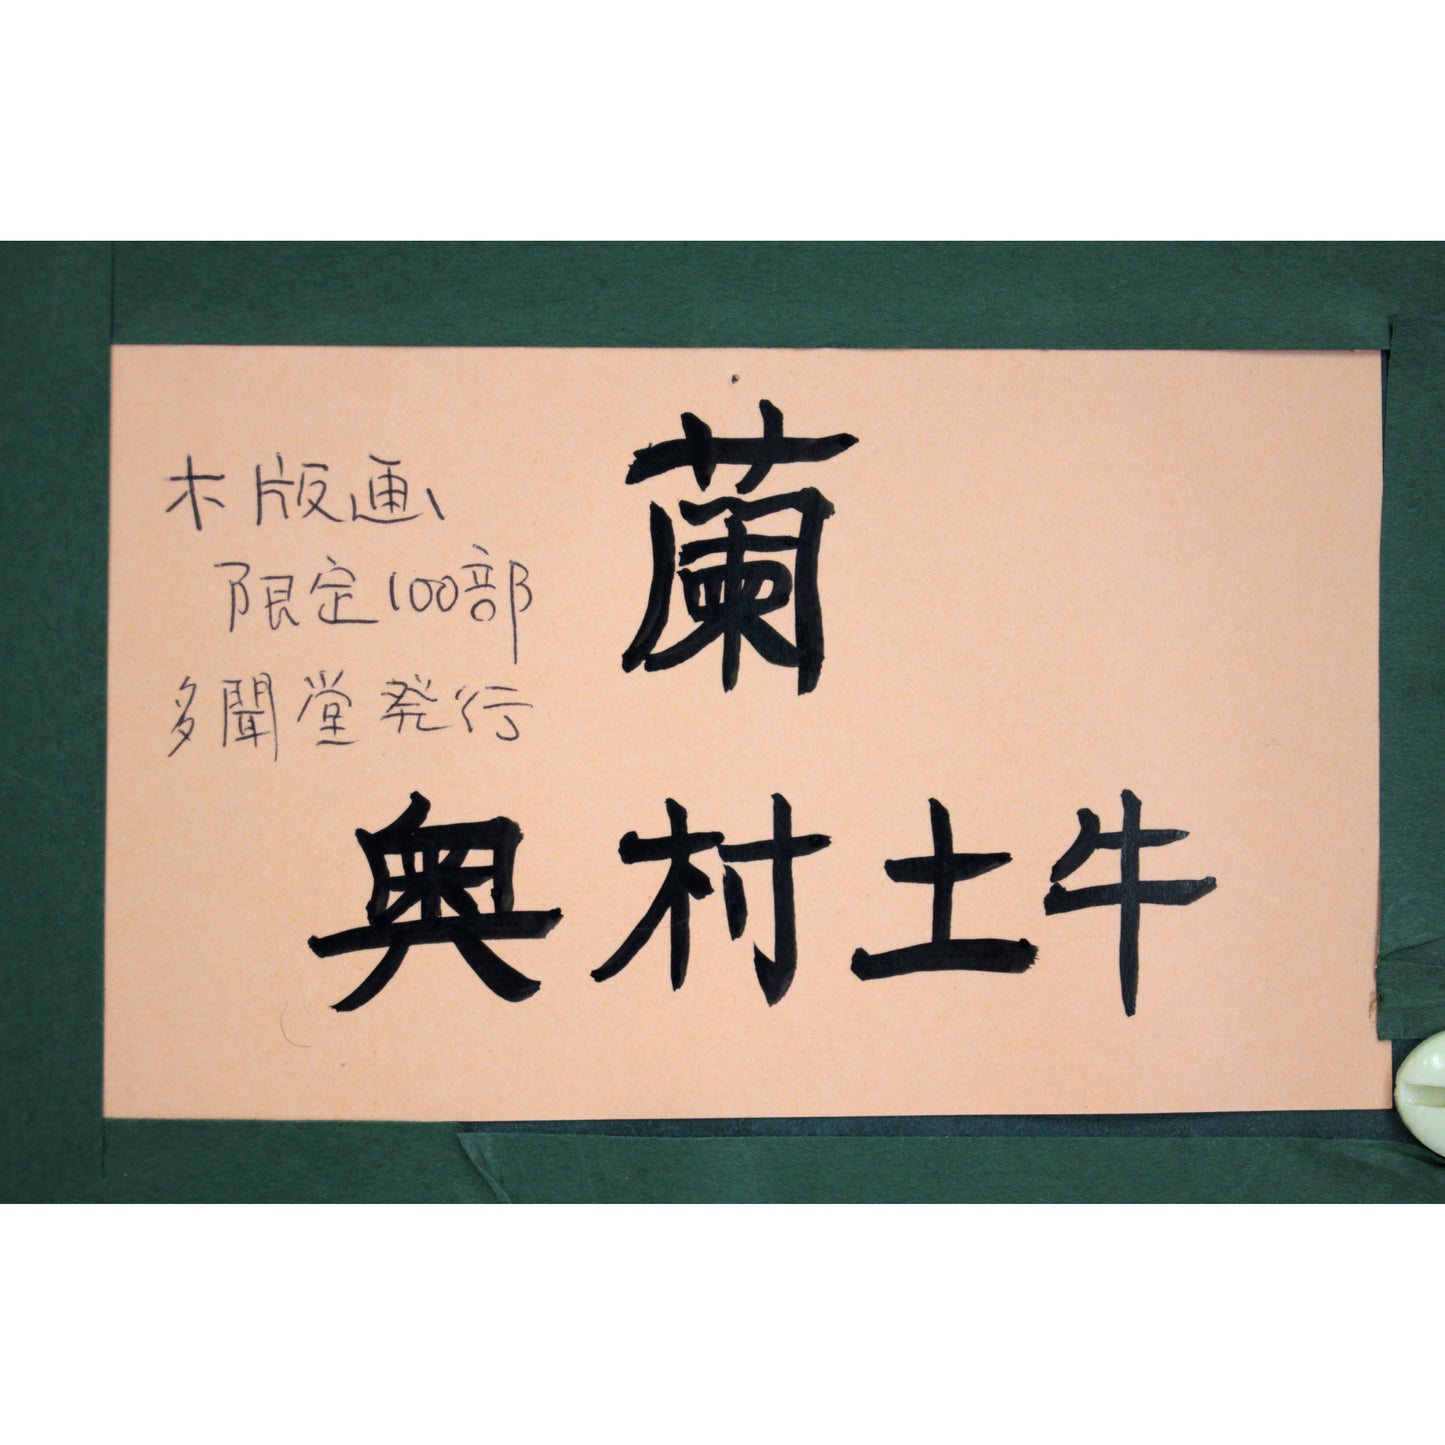 蘭
木版画
限定100部
多聞堂発行
奥村土牛